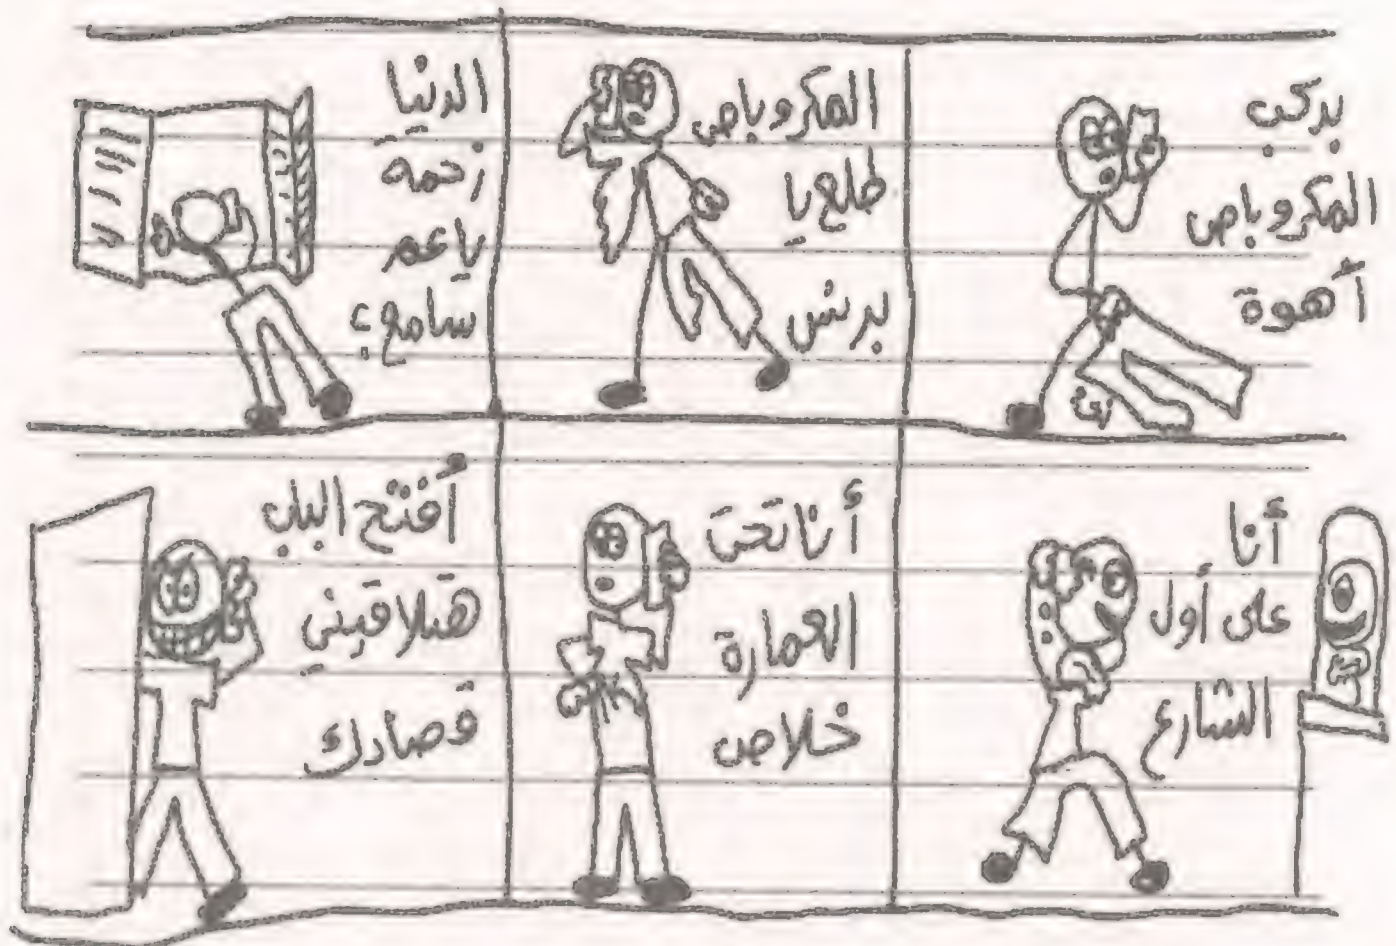 بركب
المكروباص
أهوة
المكروباص
طلع يا
برنس
الدنيا
زحمه
يا عم
سامع؟
أنا
على أول
الشارع
أنا تحت
العمارة
خلاص
أفتح الباب
هتلاقيني
قصادك